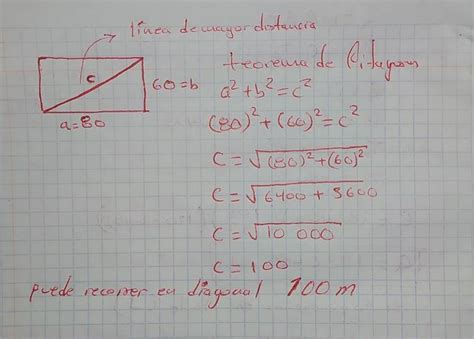 línea de mayor distancia
teorema de Pitagoras
c
60=b
a=80
a²+b²=c²
(80)²+(60)²=c²
C=√(80)²+(60)²
C=√6400+3600
C=√10 000
C=100
puede recorrer en diagonal 100m